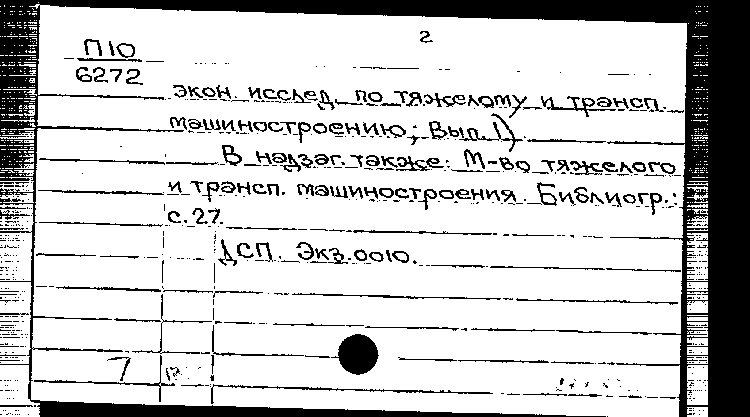 2
П10
6272
экон. исслед. по тяжелому и трансп.
машиностроению; Вып. 1)
В надзаг. также: М-во тяжелого
и трансп. машиностроения. Библиогр.:
с. 27.
ДСП. Экз. 0010.
7